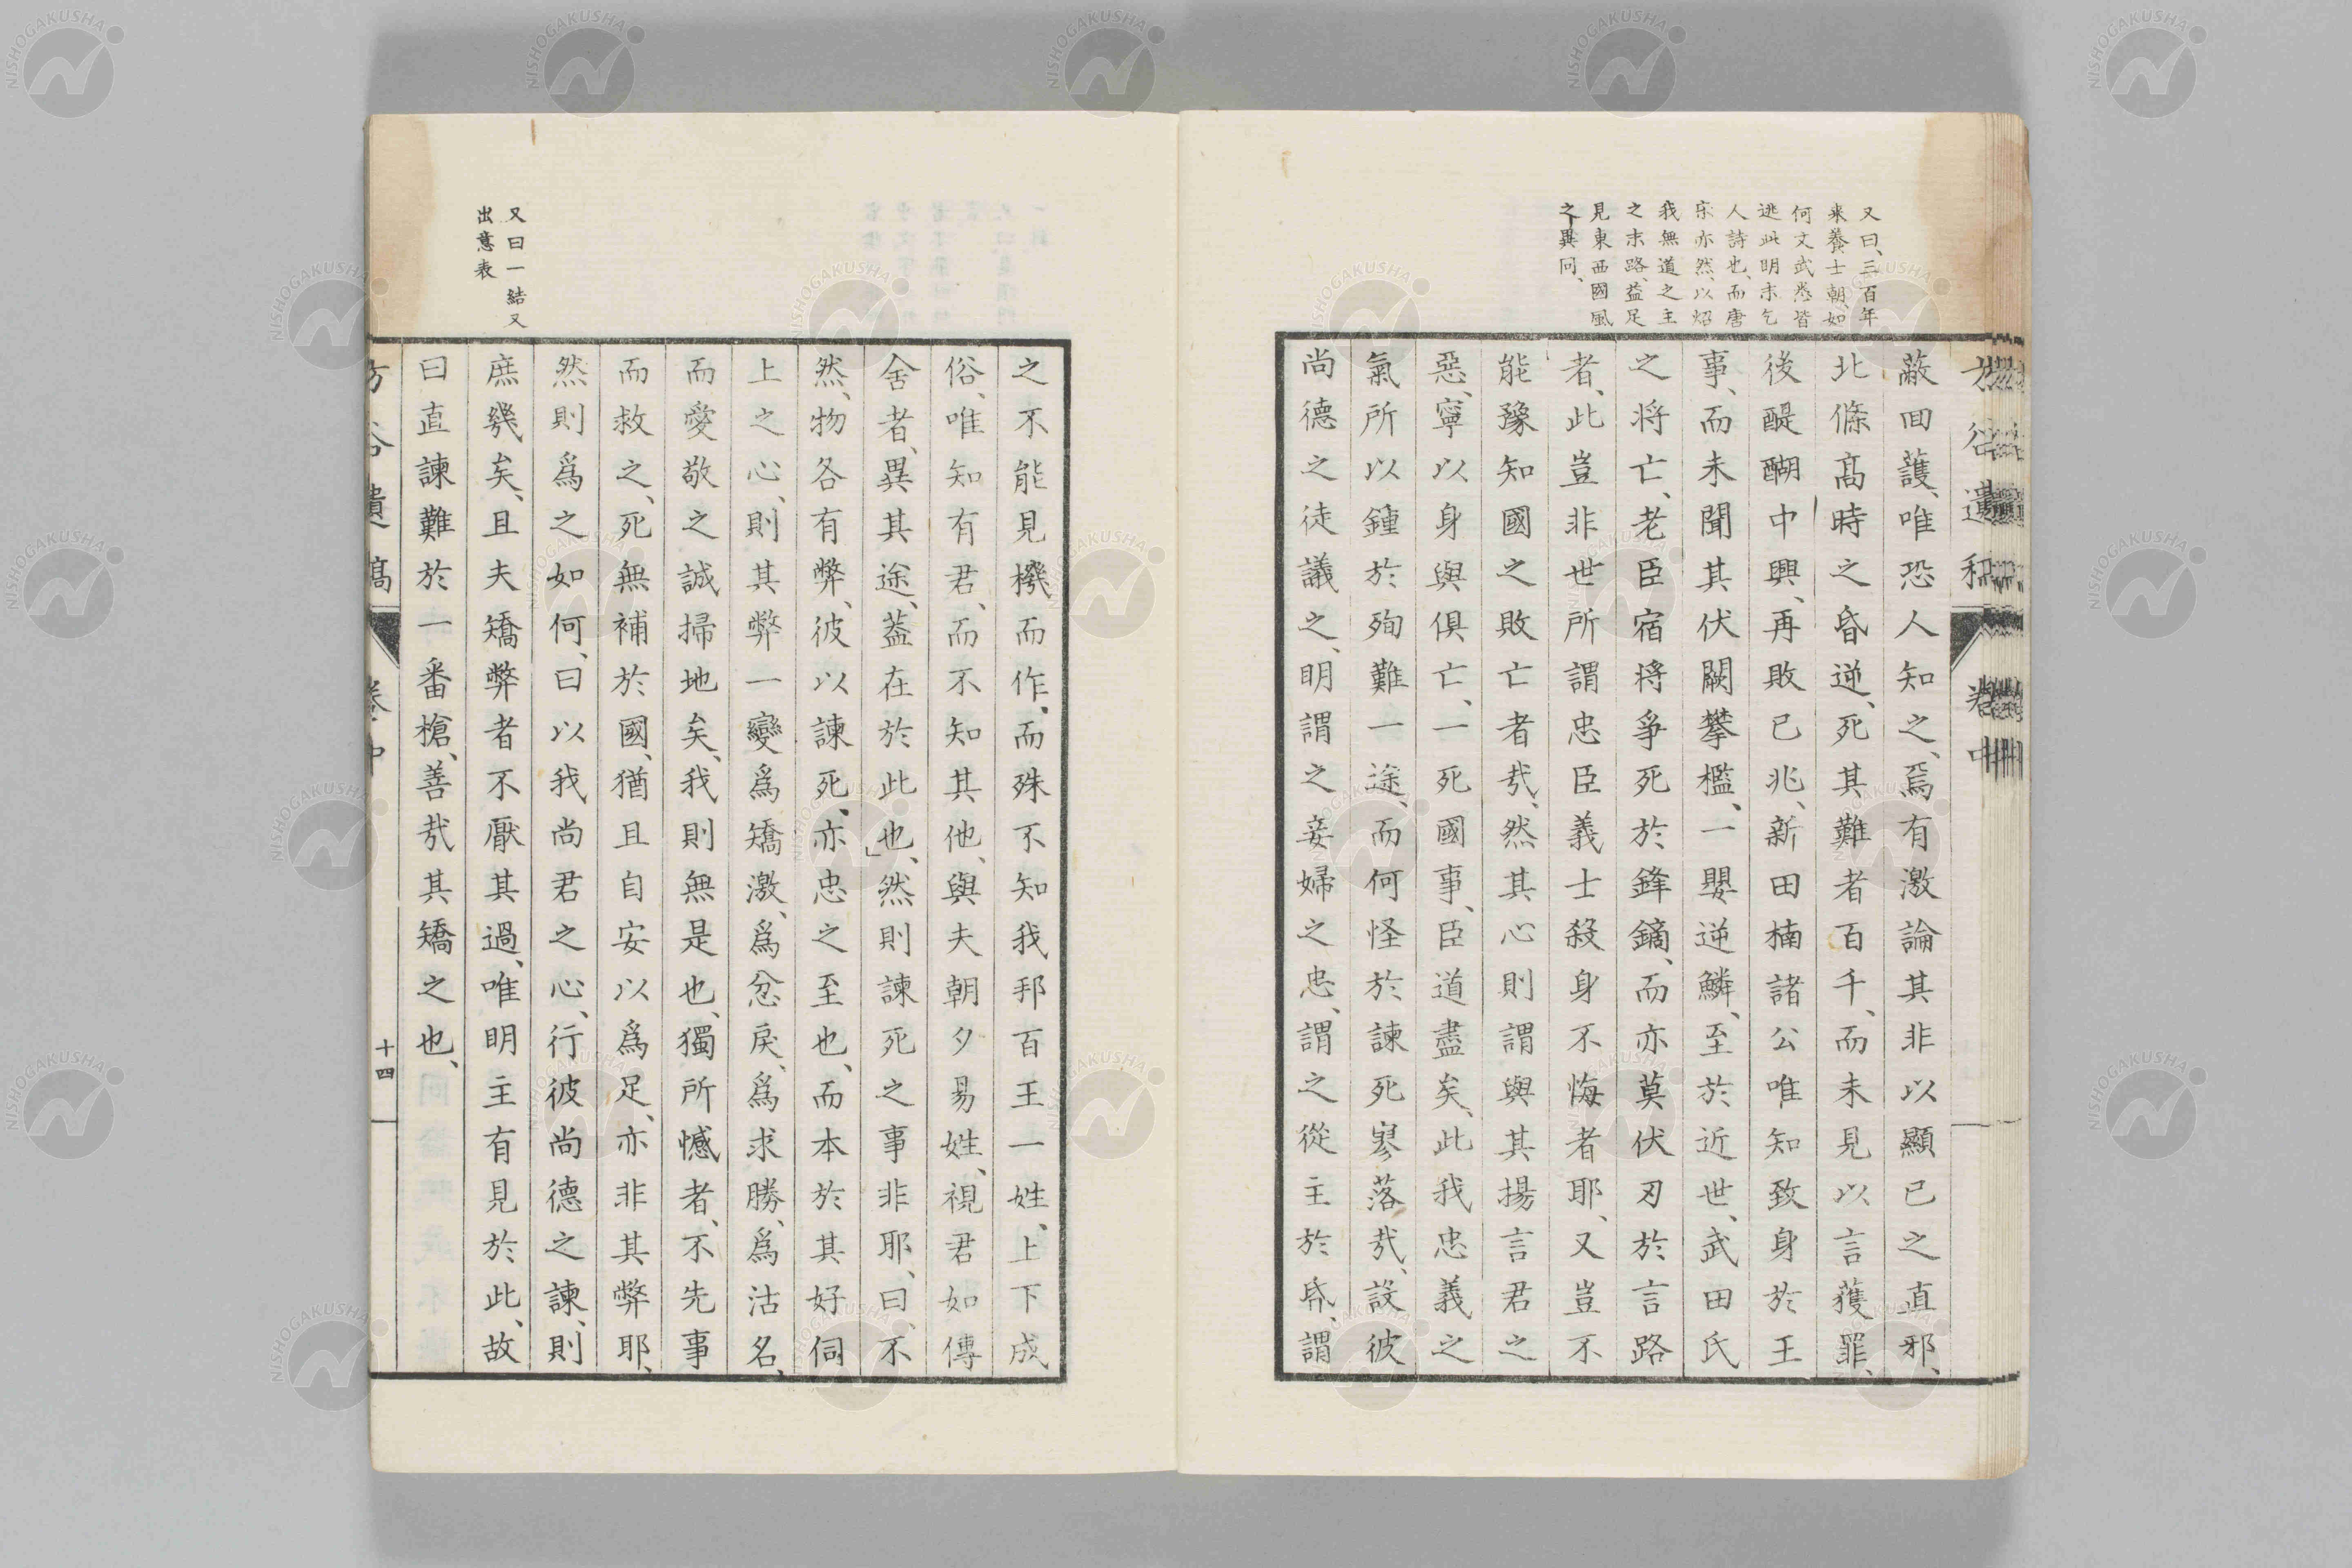 又曰、三百年
来養士朝、如
何文武悉皆
逃、此明末乞
人詩也、而唐
宋亦然、以炤
我無道之主
之末路、益足
見東西國風
之異同、
蔽回護、唯恐人知之、焉有激論其非以顯己之直邪、
北條高時之昏逆、死其難者百千、而未見以言獲罪、
後醍醐中興、再敗已兆、新田楠諸公唯知致身於王
事、而未聞其伏闕攀檻、一嬰逆鱗、至於近世、武田氏
之将亡、老臣宿将爭死於鋒鏑、而亦莫伏刃於言路
者、此豈非世所謂忠臣義士殺身不悔者耶、又豈不
能豫知國之敗亡者㢤、然其心則謂與其揚言君之
惡、寧以身與俱亡、一死國事、臣道盡矣、此我忠義之
氣所以鍾於殉難一途、而何怪於諫死寥落㢤、設彼
尚德之徒議之、明謂之妾婦之忠、謂之從主於昏、謂
之不能見機而作、而殊不知我邦百王一姓、上下成
俗、唯知有君、而不知其他、與夫朝夕易姓、視君如傳
舍者、異其途、蓋在於此也、然則諫死之事非耶、曰、不
然、物各有弊、彼以諫死、亦忠之至也、而本於其好伺
上之心、則其弊一變爲矯激、爲忿戾、爲求勝、爲沽名、
而愛敬之誠掃地矣、我則無是也、獨所憾者、不先事
而救之、死無補於國、猶且自安以爲足、亦非其弊耶、
然則爲之如何、曰以我尚君之心、行彼尚德之諫、則
庶幾矣、且夫矯弊者不厭其過、唯明主有見於此、故
曰直諫難於一番槍、善㢤其矯之也、
又曰一結又
出意表
方谷遺稿 卷中 十四